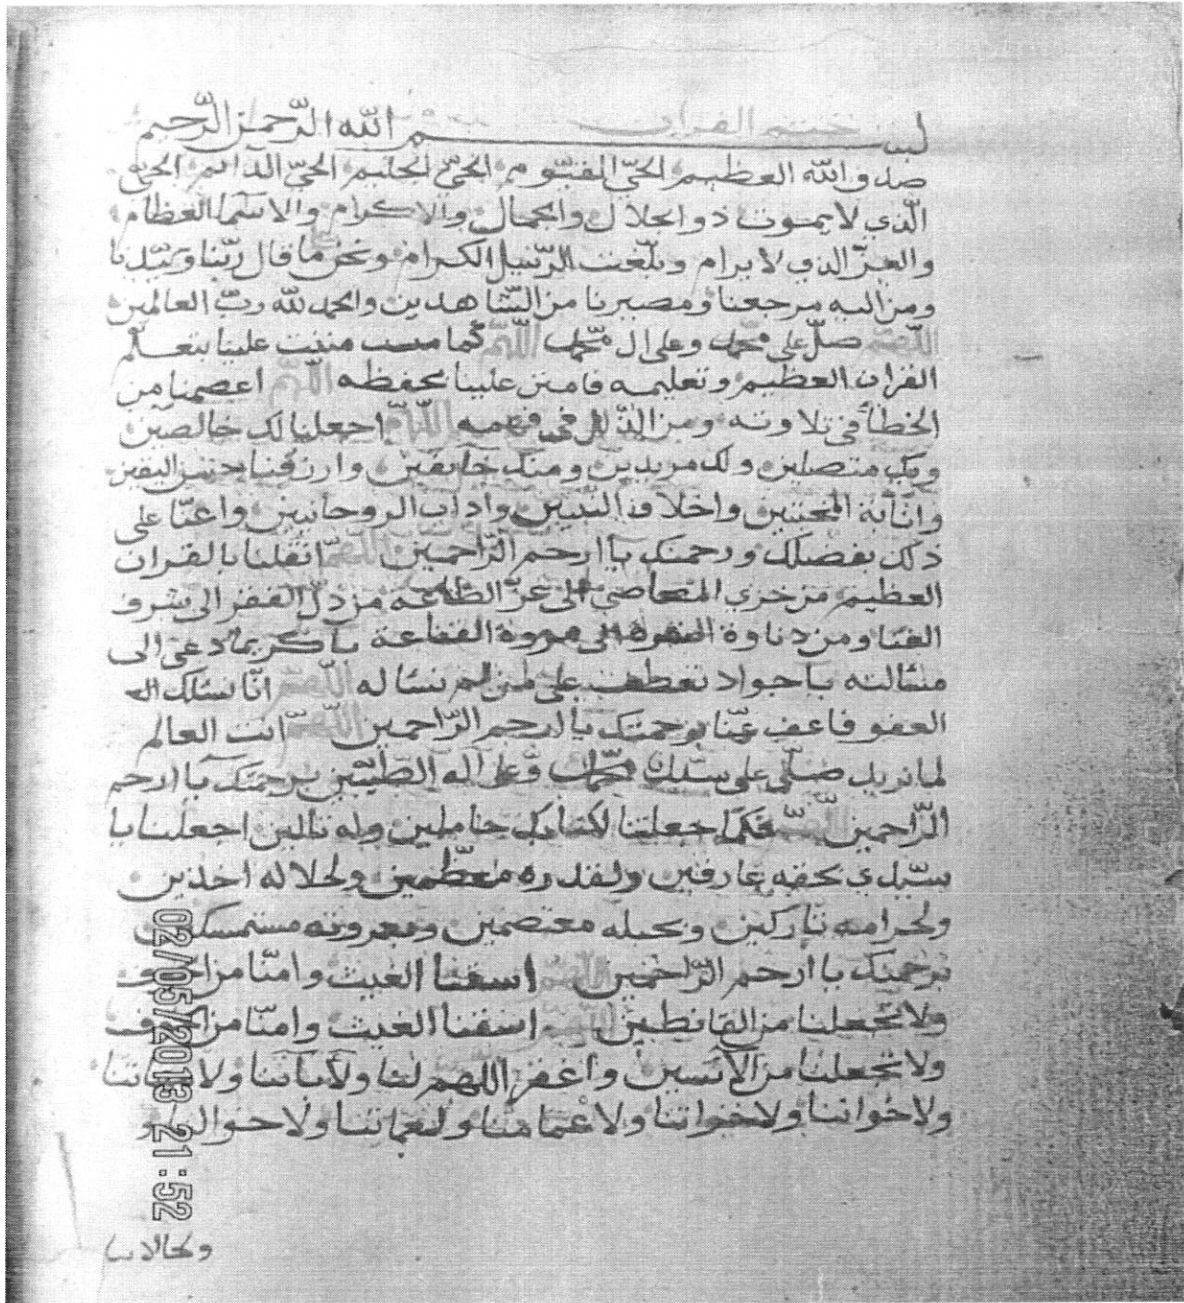 ختم القران
بسم الله الرّحمن الرّحيم
صدق الله العظيم الحيّ القيّوم الحيّ الحليم الحيّ الدائم الحيّ
الّذي لا يموت ذو الجلال والجمال والاكرام والاسما العظام
والعزّ الذي لا يرام وبلّغت الرّسل الكرام ونحن ما قال ربّنا وسيّدنا
ومن اليه مرجعنا ومصيرنا من الشّاهدين والحمد لله ربّ العالمين
اللّهمّ صلّ على محمّد وعلى ال محمّد اللّهمّ كما مننت علينا بتعلّم
القران العظيم وتعليمه فامنن علينا بحفظه اللّهمّ اعصمنا من
الخطأ في تلاوته ومن الزّلل في فهمه اللّهمّ اجعلنا لك خالصين
وبك متصلين ولك مريدين ومنك خايفين وارزقنا حسن اليقين
وانابة المخبتين واخلاق النّبيّين واداب الروحانيين واعنّا على
ذلك بفضلك ورحمتك يا ارحم الرّاحمين اللّهمّ انقلنا بالقران
العظيم من خزي المعاصي الى عزّ الطاعة من ذلّ الفقر الى شرف
الغنا ومن دناوة الى مروة القناعة يا كريما دعى الى
مسالته يا جواد تعطف على من لم يساله اللّهمّ انّا نسئلك
العفو فاعف عنّا برحمتك يا ارحم الرّاحمين اللّهمّ انت العالم
لما تريد صلّى على سيّدنا محمّد وعلى آله الطيّبين برحمتك يا ارحم
الرّاحمين اللّهمّ فكما جعلتنا لكتابك حاملين وله تالين اجعلنا يا
سيّدي بحقه عارفين ولقدره معظّمين ولحلاله اخذين
ولحرامه تاركين وبحبله معتصمين وبعروته مستمسكين
برحمتك يا ارحم الرّاحمين اللّهمّ اسقنا الغيث وامنّا من الخوف
ولا تجعلنا من القانطين اللّهمّ اسقنا الغيث وامنّا من الخوف
ولا تجعلنا من الآئسين واغفر اللّهمّ لنا ولآبائنا ولامهاتنا
ولاخواننا ولاخواتنا ولاعمامنا ولعماتنا ولاخوالنا
ولخالاتنا
02/05/2013 21:52